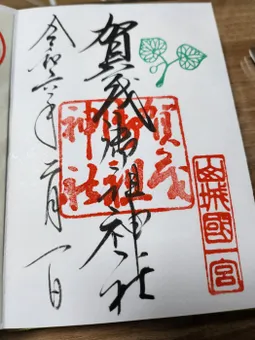 山城國一宮
賀茂御祖神社
賀茂御祖神社
令和六年一月一日